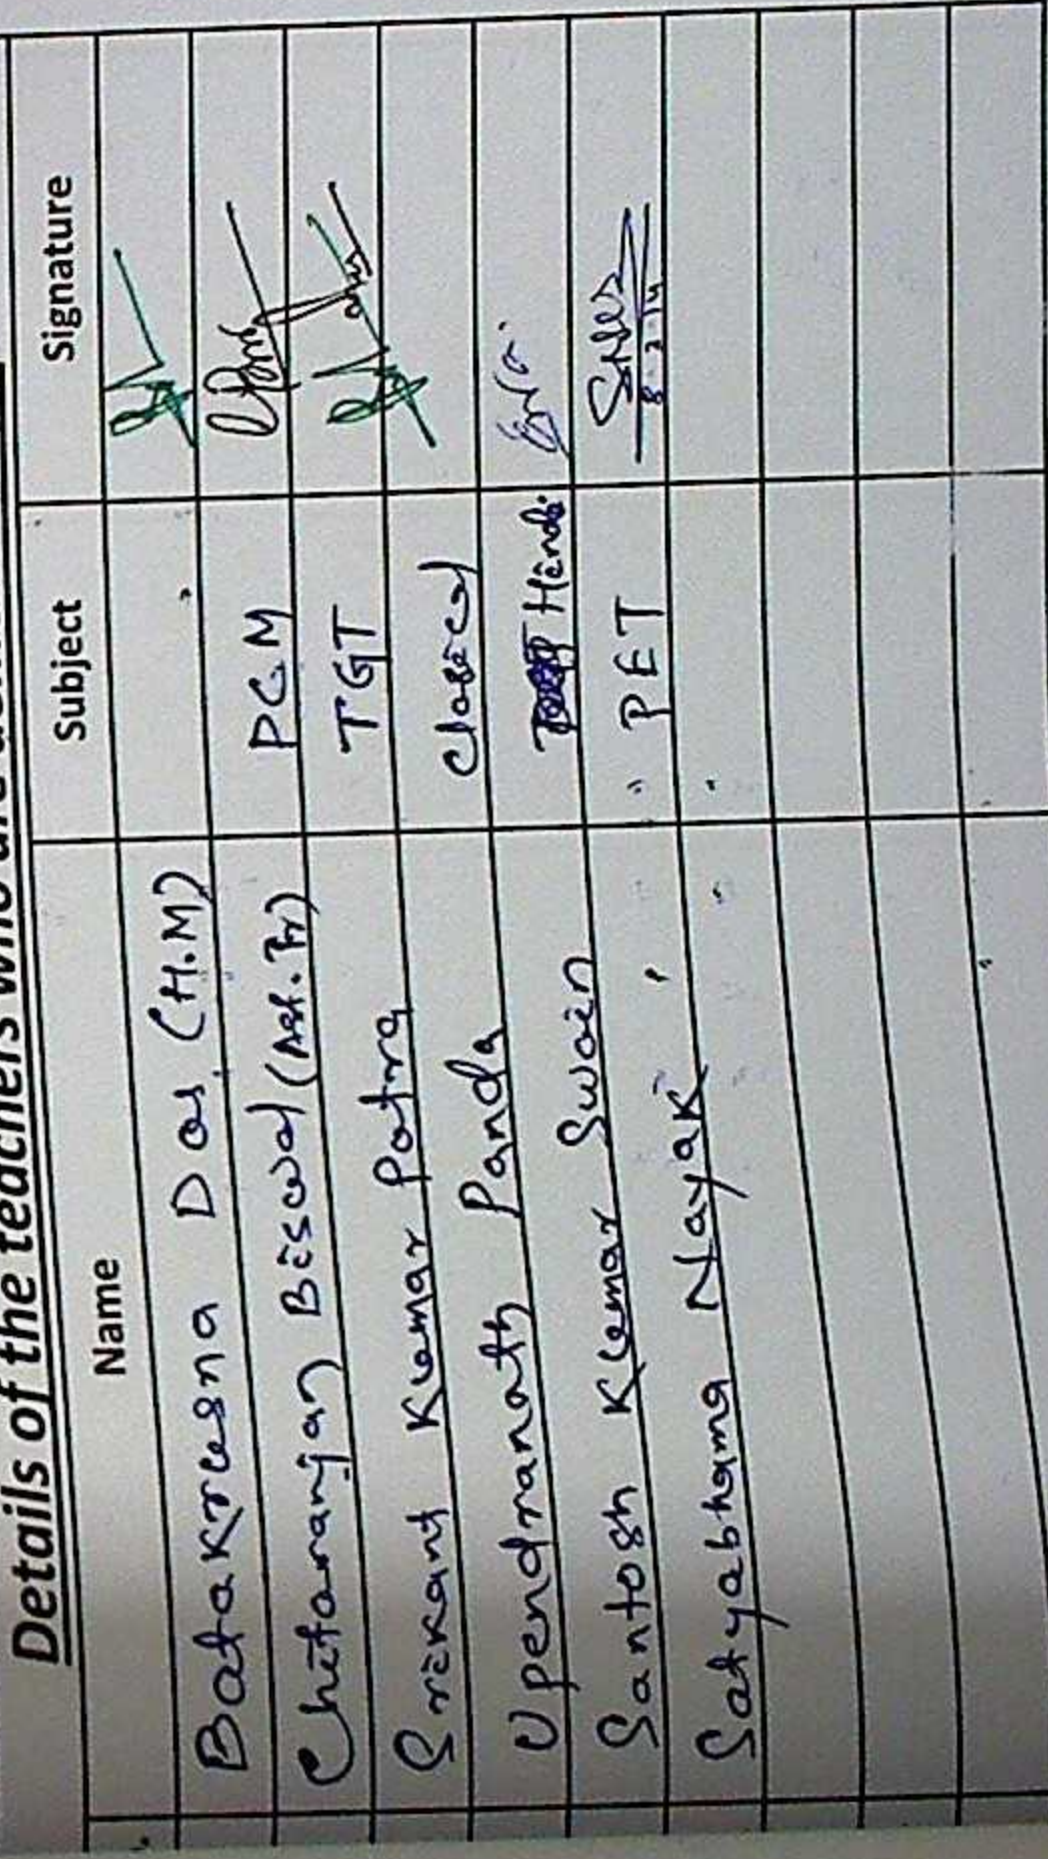 Details of the teachers who are
Name Subject Signature
Batakrusna Das (H.M)
Chitaranjan Biswal (Asst. Tr) PCM
Srikant Kumar Patra TGT
Upendranath Panda Classical
Santosh Kumar Swain Hindi
Satyabhama Nayak PET 8.2.14